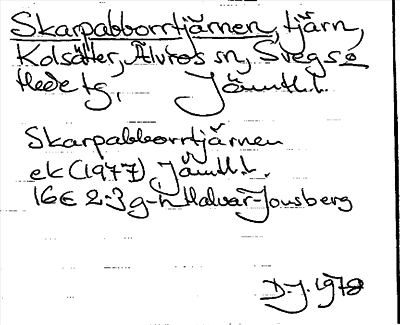 Skarpabborrtjärnen, tjärn,
Kolsätter, Älvros sn, Svegs o
Hede tg, Jämtl.l.
Skarpabborrtjärnen
ek (1977), Jämtl.l.
16E 2-3 g-h Halvar-Jonsberg
D.J. 1978